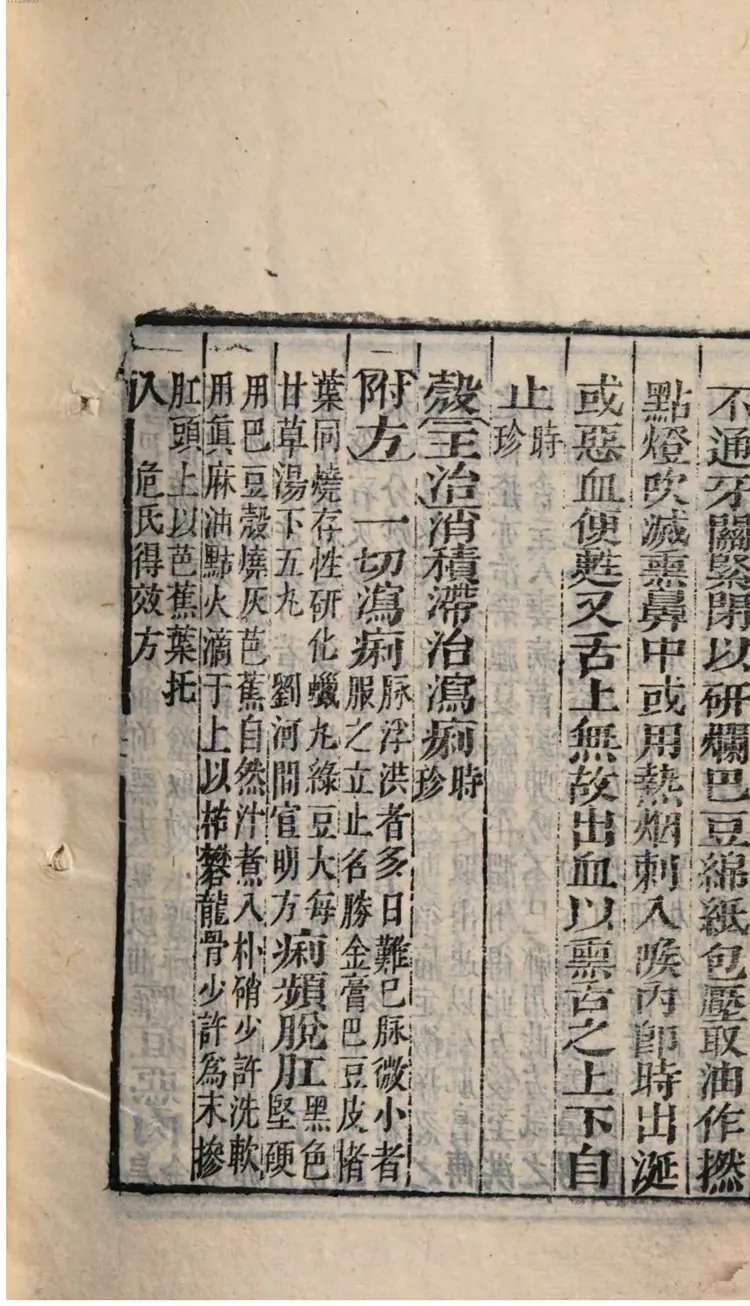 不通牙關緊閉以研爛巴豆綿紙包壓取油作撚
點燈吹滅熏鼻中或用熱烟刺入喉內卽時出涎
或惡血便甦又舌上無故出血以熏舌之上下自
止時珍
殼主治消積滯治瀉痢時珍
附方一切瀉痢脉浮洪者多日難已脉微小者
服之立止名勝金膏巴豆皮楮
葉同燒存性研化蠟丸綠豆大每
甘草湯下五丸 劉河間宣明方痢頻脫肛黑色
堅硬
用巴豆殼燒灰芭蕉自然汁煮入朴硝少許洗軟
用真麻油點火滴于上以枯礬龍骨少許為末摻
肛頭上以芭蕉葉托
入 危氏得效方